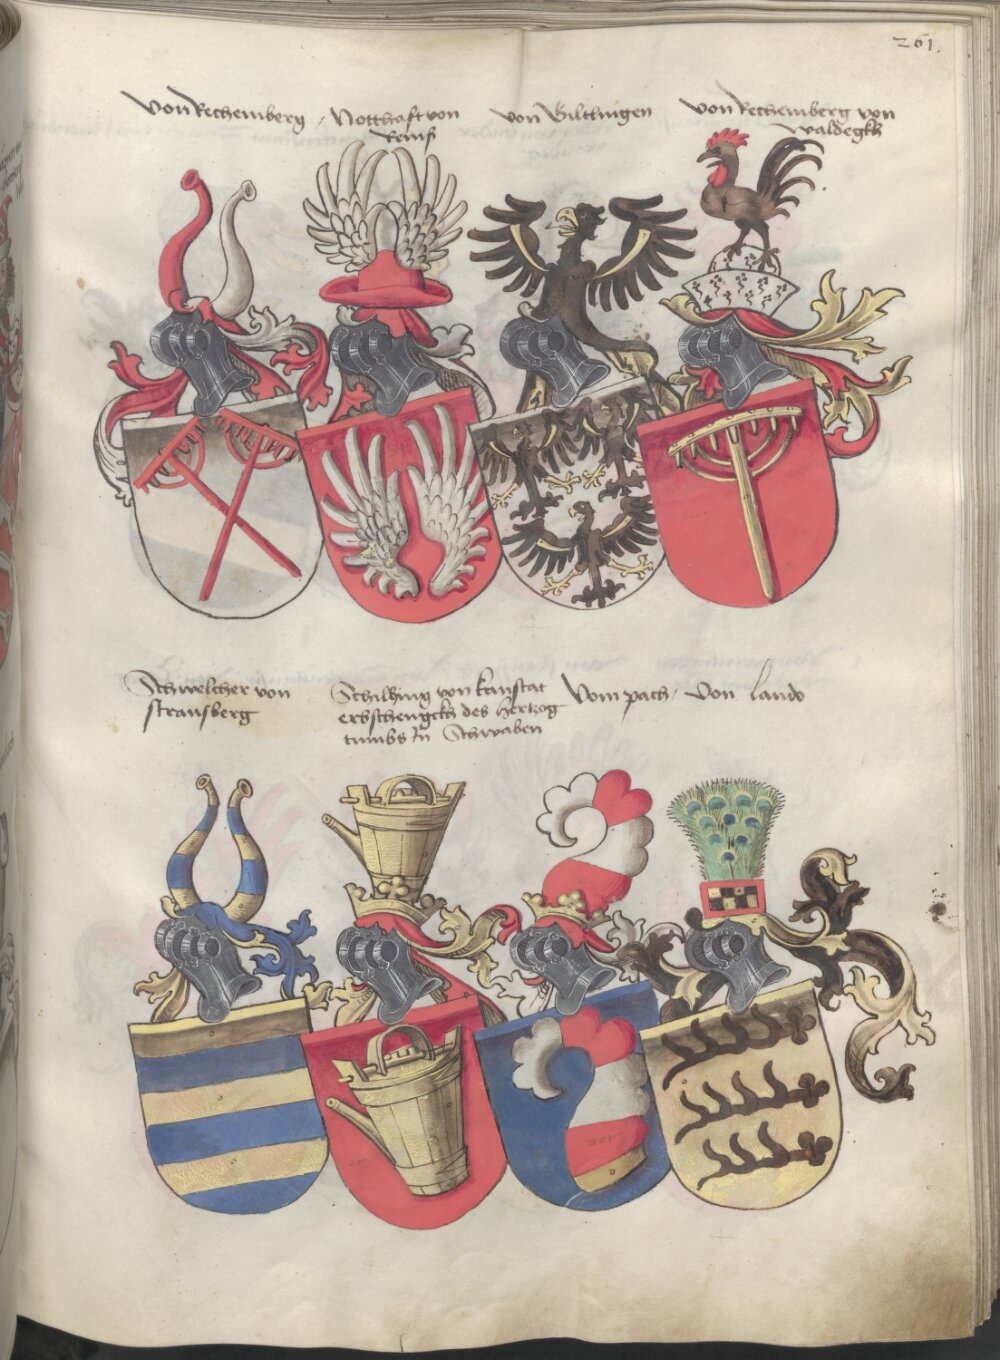 261.
Von Rechemberg
Notthaft von
Remß
von Biltlingen
Von Rechemberg von
Waldegkh
Schwelcher von
stransberg
Schilhing von kanstat
erbschengckh des hertzog
tumbs Jn Schwaben
Vom pach
Von Lando